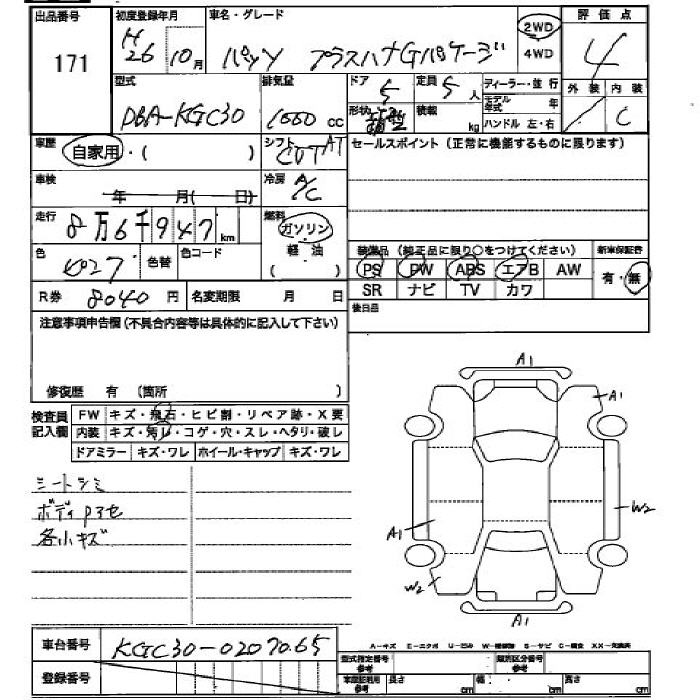 出品番号 初度登録年月 車名・グレード 評価点
171 H26 10月 パッソ プラスハナGパケージ 2WD 4WD 4
型式 排気量 ドア 定員 ディーラー・並行 外装 内装
DBA-KGC30 1000cc 5 5人 モデル年式 年 C
形状 積載 kg ハンドル 左・右
車歴 自家用・( ) シフト CVT AT セールスポイント(正常に機能するものに限ります)
車検 年 月( 日) 冷房 A/C
走行 8万6千947km 燃料 ガソリン
軽油
( )
色 色替 色コード
装備品 (純正品に限り○をつけてください) 新車保証書
PS PW ABS エアB AW 有・無
SR ナビ TV カワ
R券 8040円 名変期限 月 日 後日品
注意事項申告欄(不具合内容等は具体的に記入して下さい)
修復歴 有 (箇所 )
検査員記入欄 FW キズ・飛石・ヒビ割・リペア跡・X要
内装 キズ・汚レ・コゲ・穴・スレ・ヘタリ・破レ
ドアミラー キズ・ワレ ホイール・キャップ キズ・ワレ
シートシミ
ボディ
各小キズ
A1
A1
W2
A1
W2
A1
車台番号 KGC30-0207065
登録番号
A-キズ E-エクボ U-凹み S-サビ
型式指定番号 参考 類別区分番号 参考
車庫証明用 参考 長さ cm 幅 cm 高さ cm